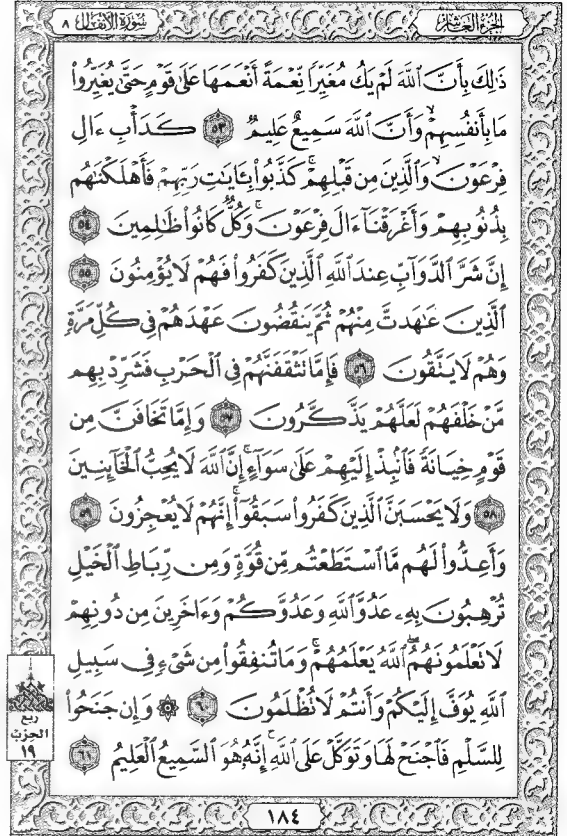 الجزء العاشر
سورة الأنفال ٨
ذَٰلِكَ بِأَنَّ ٱللَّهَ لَمْ يَكُ مُغَيِّرًا نِّعْمَةً أَنْعَمَهَا عَلَىٰ قَوْمٍ حَتَّىٰ يُغَيِّرُوا۟
مَا بِأَنفُسِهِمْ ۙ وَأَنَّ ٱللَّهَ سَمِيعٌ عَلِيمٌ ٥٣ كَدَأْبِ ءَالِ
فِرْعَوْنَ ۙ وَٱلَّذِينَ مِن قَبْلِهِمْ ۚ كَذَّبُوا۟ بِـَٔايَـٰتِ رَبِّهِمْ فَأَهْلَكْنَـٰهُم
بِذُنُوبِهِمْ وَأَغْرَقْنَآ ءَالَ فِرْعَوْنَ ۚ وَكُلٌّ كَانُوا۟ ظَـٰلِمِينَ ٥٤
إِنَّ شَرَّ ٱلدَّوَآبِّ عِندَ ٱللَّهِ ٱلَّذِينَ كَفَرُوا۟ فَهُمْ لَا يُؤْمِنُونَ ٥٥
ٱلَّذِينَ عَـٰهَدتَّ مِنْهُمْ ثُمَّ يَنقُضُونَ عَهْدَهُمْ فِى كُلِّ مَرَّةٍ
وَهُمْ لَا يَتَّقُونَ ٥٦ فَإِمَّا تَثْقَفَنَّهُمْ فِى ٱلْحَرْبِ فَشَرِّدْ بِهِم
مَّنْ خَلْفَهُمْ لَعَلَّهُمْ يَذَّكَّرُونَ ٥٧ وَإِمَّا تَخَافَنَّ مِن
قَوْمٍ خِيَانَةً فَٱنۢبِذْ إِلَيْهِمْ عَلَىٰ سَوَآءٍ ۚ إِنَّ ٱللَّهَ لَا يُحِبُّ ٱلْخَآئِنِينَ
٥٨ وَلَا يَحْسَبَنَّ ٱلَّذِينَ كَفَرُوا۟ سَبَقُوٓا۟ ۚ إِنَّهُمْ لَا يُعْجِزُونَ ٥٩
وَأَعِدُّوا۟ لَهُم مَّا ٱسْتَطَعْتُم مِّن قُوَّةٍ وَمِن رِّبَاطِ ٱلْخَيْلِ
تُرْهِبُونَ بِهِۦ عَدُوَّ ٱللَّهِ وَعَدُوَّكُمْ وَءَاخَرِينَ مِن دُونِهِمْ
لَا تَعْلَمُونَهُمُ ٱللَّهُ يَعْلَمُهُمْ ۚ وَمَا تُنفِقُوا۟ مِن شَىْءٍ فِى سَبِيلِ
ٱللَّهِ يُوَفَّ إِلَيْكُمْ وَأَنتُمْ لَا تُظْلَمُونَ ٦٠ ۞ وَإِن جَنَحُوا۟
لِلسَّلْمِ فَٱجْنَحْ لَهَا وَتَوَكَّلْ عَلَى ٱللَّهِ ۚ إِنَّهُۥ هُوَ ٱلسَّمِيعُ ٱلْعَلِيمُ ٦١
ربع
الحزب
١٩
١٨٤